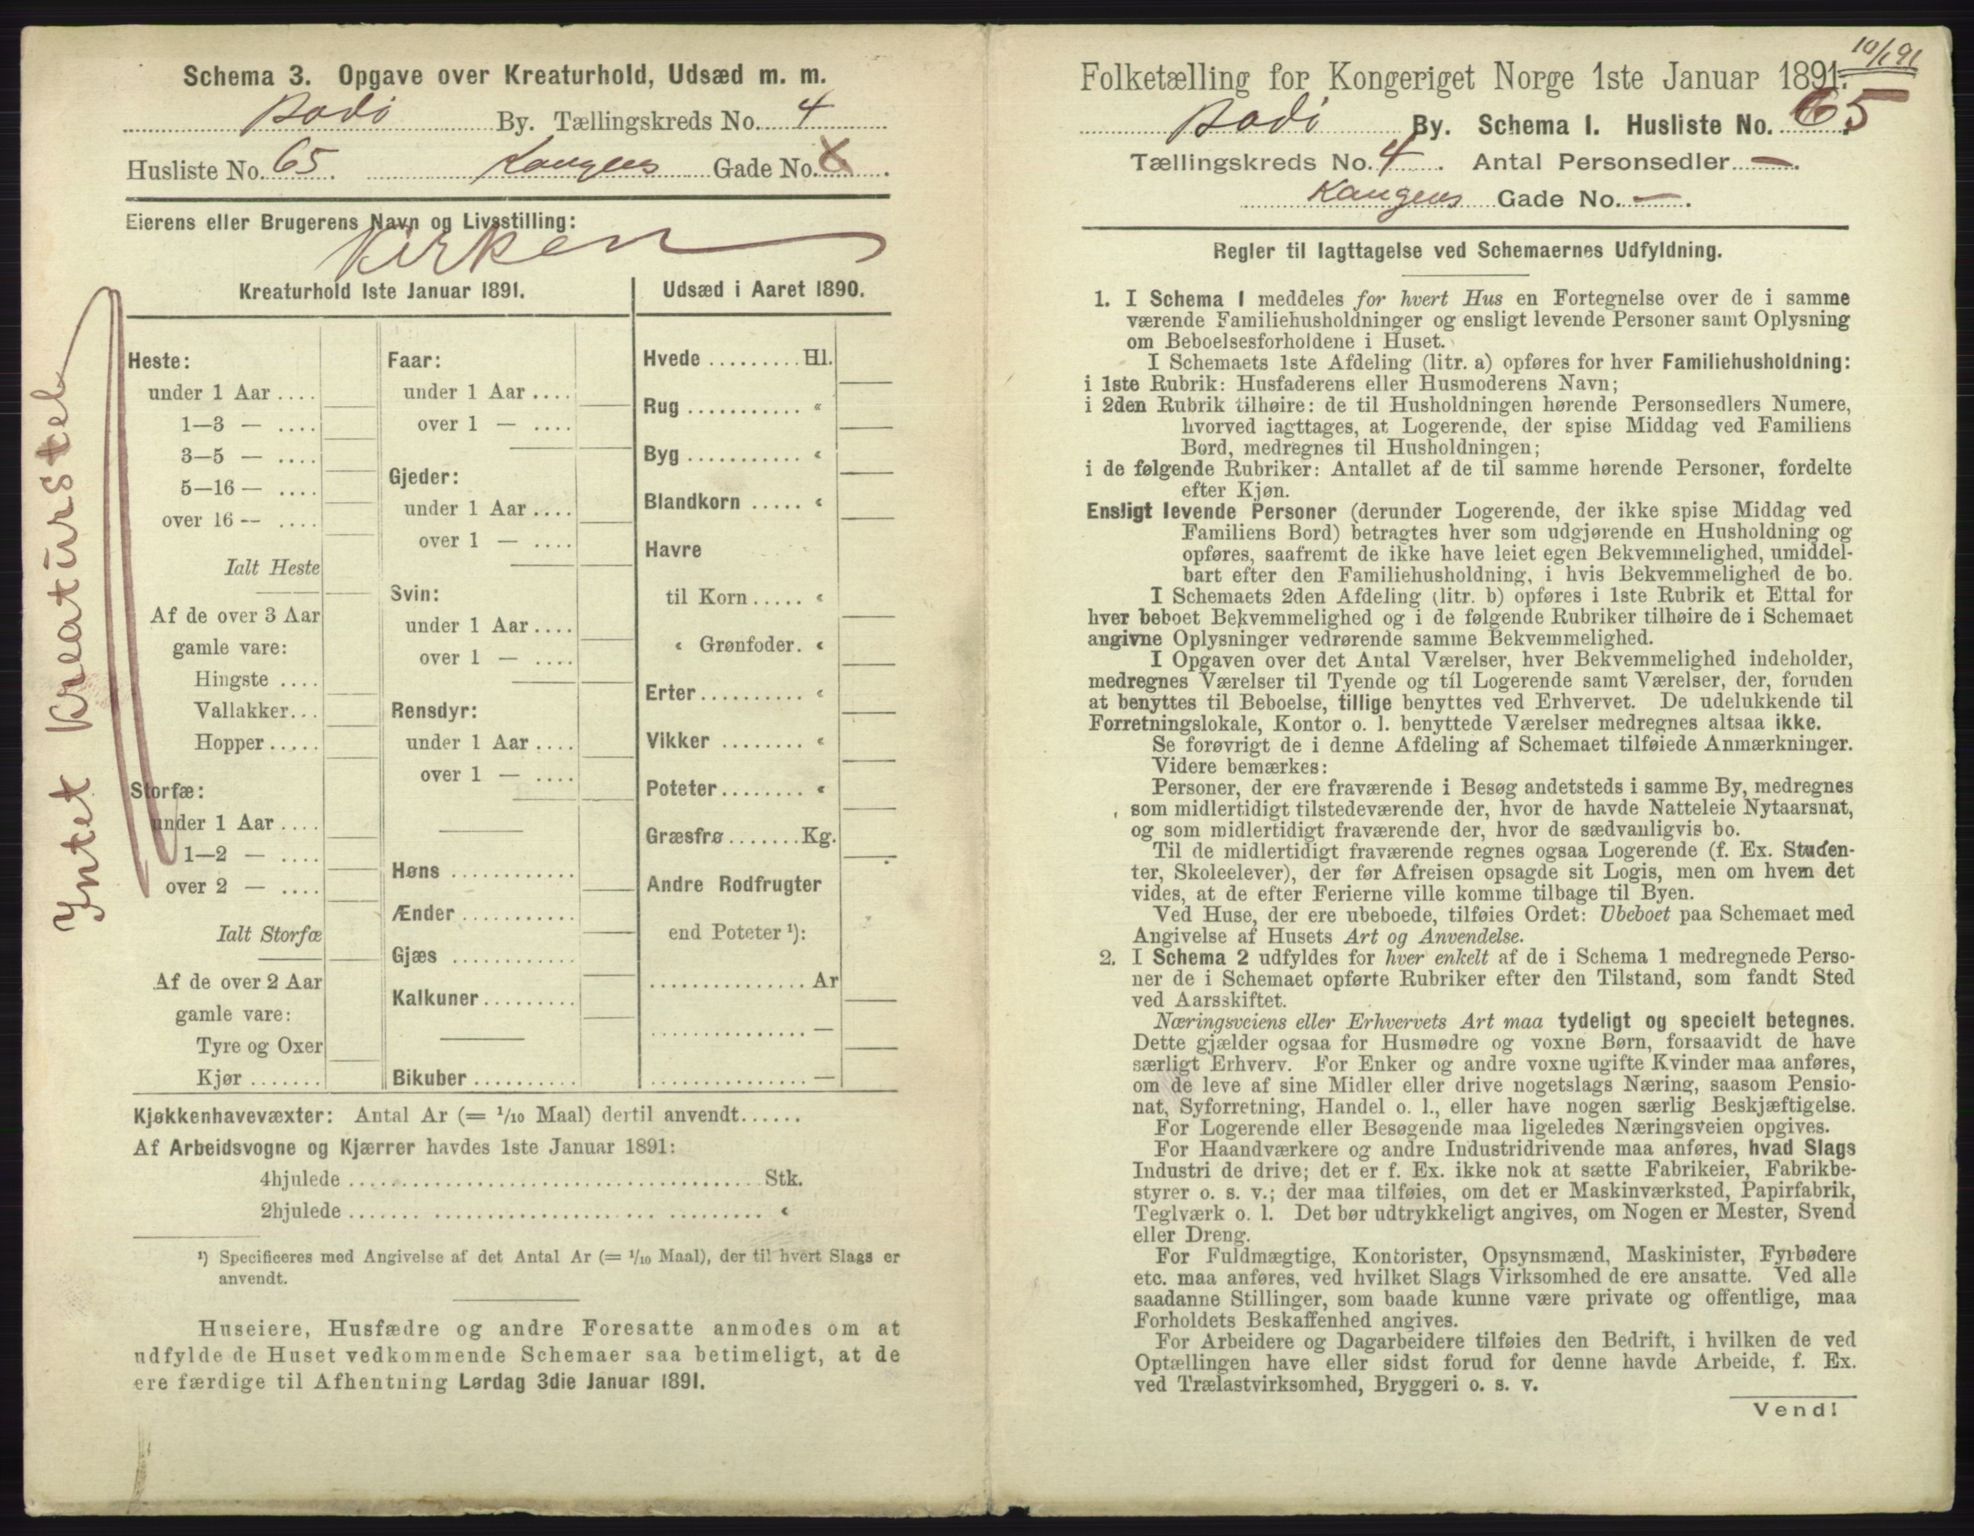 Schema 3. Opgave over Kreaturhold, Udsæd m. m.
Bodö By. Tællingskreds No. 4
Husliste No. 65. Kongens Gade No.
Eierens eller Brugerens Navn og Livsstilling:
Kirken
Yntet Kreaturstel
Kreaturhold 1ste Januar 1891.
Heste:
under 1 Aar ....
1—3 — ....
3—5 — ....
5—16 — ....
over 16 — ....
Ialt Heste
Af de over 3 Aar
gamle vare:
Hingste ....
Vallakker...
Hopper.....
Storfæ:
under 1 Aar ....
1—2 — ....
over 2 — ....
Ialt Storfæ
Af de over 2 Aar
gamle vare:
Tyre og Oxer
Kjør .......
Faar:
under 1 Aar ....
over 1 — ....
Gjeder:
under 1 Aar ....
over 1 — ....
Svin:
under 1 Aar ....
over 1 — ....
Rensdyr:
under 1 Aar ....
over 1 — ....
Høns ............
Ænder ...........
Gjæs ............
Kalkuner.........
Bikuber ..........
Udsæd i Aaret 1890.
Hvede ......... Hl.
Rug ........... “
Byg ........... “
Blandkorn ..... “
Havre
til Korn ..... “
“ Grønfoder. “
Erter.......... “
Vikker ........ “
Poteter........ “
Græsfrø .......Kg.
Andre Rodfrugter
end Poteter ¹):
............... Ar
............... —
............... —
Kjøkkenhavevæxter: Antal Ar (= 1/10 Maal) dertil anvendt......
Af Arbeidsvogne og Kjærrer havdes 1ste Januar 1891:
4hjulede ........................................ Stk.
2hjulede ........................................ “
¹) Specificeres med Angivelse af det Antal Ar (= 1/10 Maal), der til hvert Slags er
anvendt.
Huseiere, Husfædre og andre Foresatte anmodes om at
udfylde de Huset vedkommende Schemaer saa betimeligt, at de
ere færdige til Afhentning Lørdag 3die Januar 1891.
10/1 91
Folketælling for Kongeriget Norge 1ste Januar 1891.
Bodö By. Schema 1. Husliste No. 65
Tællingskreds No. 4. Antal Personsedler —.
Kongens Gade No. —.
Regler til Iagttagelse ved Schemaernes Udfyldning.
1. I Schema 1 meddeles for hvert Hus en Fortegnelse over de i samme
værende Familiehusholdninger og ensligt levende Personer samt Oplysning
om Beboelsesforholdene i Huset.
I Schemaets 1ste Afdeling (litr. a) opføres for hver Familiehusholdning:
i 1ste Rubrik: Husfaderens eller Husmoderens Navn;
i 2den Rubrik tilhøire: de til Husholdningen hørende Personsedlers Numere,
hvorved iagttages, at Logerende, der spise Middag ved Familiens
Bord, medregnes til Husholdningen;
i de følgende Rubriker: Antallet af de til samme hørende Personer, fordelte
efter Kjøn.
Ensligt levende Personer (derunder Logerende, der ikke spise Middag ved
Familiens Bord) betragtes hver som udgjørende en Husholdning og
opføres, saafremt de ikke have leiet egen Bekvemmelighed, umiddel-
bart efter den Familiehusholdning, i hvis Bekvemmelighed de bo.
I Schemaets 2den Afdeling (litr. b) opføres i 1ste Rubrik et Ettal for
hver beboet Bekvemmelighed og i de følgende Rubriker tilhøire de i Schemaet
angivne Oplysninger vedrørende samme Bekvemmelighed.
I Opgaven over det Antal Værelser, hver Bekvemmelighed indeholder,
medregnes Værelser til Tyende og til Logerende samt Værelser, der, foruden
at benyttes til Beboelse, tillige benyttes ved Erhvervet. De udelukkende til
Forretningslokale, Kontor o. l. benyttede Værelser medregnes altsaa ikke.
Se forøvrigt de i denne Afdeling af Schemaet tilføiede Anmærkninger.
Videre bemærkes:
Personer, der ere fraværende i Besøg andetsteds i samme By, medregnes
som midlertidigt tilstedeværende der, hvor de havde Natteleie Nytaarsnat,
og som midlertidigt fraværende der, hvor de sædvanligvis bo.
Til de midlertidigt fraværende regnes ogsaa Logerende (f. Ex. Studen-
ter, Skoleelever), der før Afreisen opsagde sit Logis, men om hvem det
vides, at de efter Ferierne ville komme tilbage til Byen.
Ved Huse, der ere ubeboede, tilføies Ordet: Ubeboet paa Schemaet med
Angivelse af Husets Art og Anvendelse.
2. I Schema 2 udfyldes for hver enkelt af de i Schema 1 medregnede Perso-
ner de i Schemaet opførte Rubriker efter den Tilstand, som fandt Sted
ved Aarsskiftet.
Næringsveiens eller Erhvervets Art maa tydeligt og specielt betegnes.
Dette gjælder ogsaa for Husmødre og voxne Børn, forsaavidt de have
særligt Erhverv. For Enker og andre voxne ugifte Kvinder maa anføres,
om de leve af sine Midler eller drive nogetslags Næring, saasom Pensio-
nat, Syforretning, Handel o. l., eller have nogen særlig Beskjæftigelse.
For Logerende eller Besøgende maa ligeledes Næringsveien opgives.
For Haandværkere og andre Industridrivende maa anføres, hvad Slags
Industri de drive; det er f. Ex. ikke nok at sætte Fabrikeier, Fabrikbe-
styrer o. s. v.; der maa tilføies, om det er Maskinværksted, Papirfabrik,
Teglværk o. l. Det bør udtrykkeligt angives, om Nogen er Mester, Svend
eller Dreng.
For Fuldmægtige, Kontorister, Opsynsmænd, Maskinister, Fyrbødere
etc. maa anføres, ved hvilket Slags Virksomhed de ere ansatte. Ved alle
saadanne Stillinger, som baade kunne være private og offentlige, maa
Forholdets Beskaffenhed angives.
For Arbeidere og Dagarbeidere tilføies den Bedrift, i hvilken de ved
Optællingen have eller sidst forud for denne havde Arbeide, f. Ex.
ved Trælastvirksomhed, Bryggeri o. s. v.
Vend!